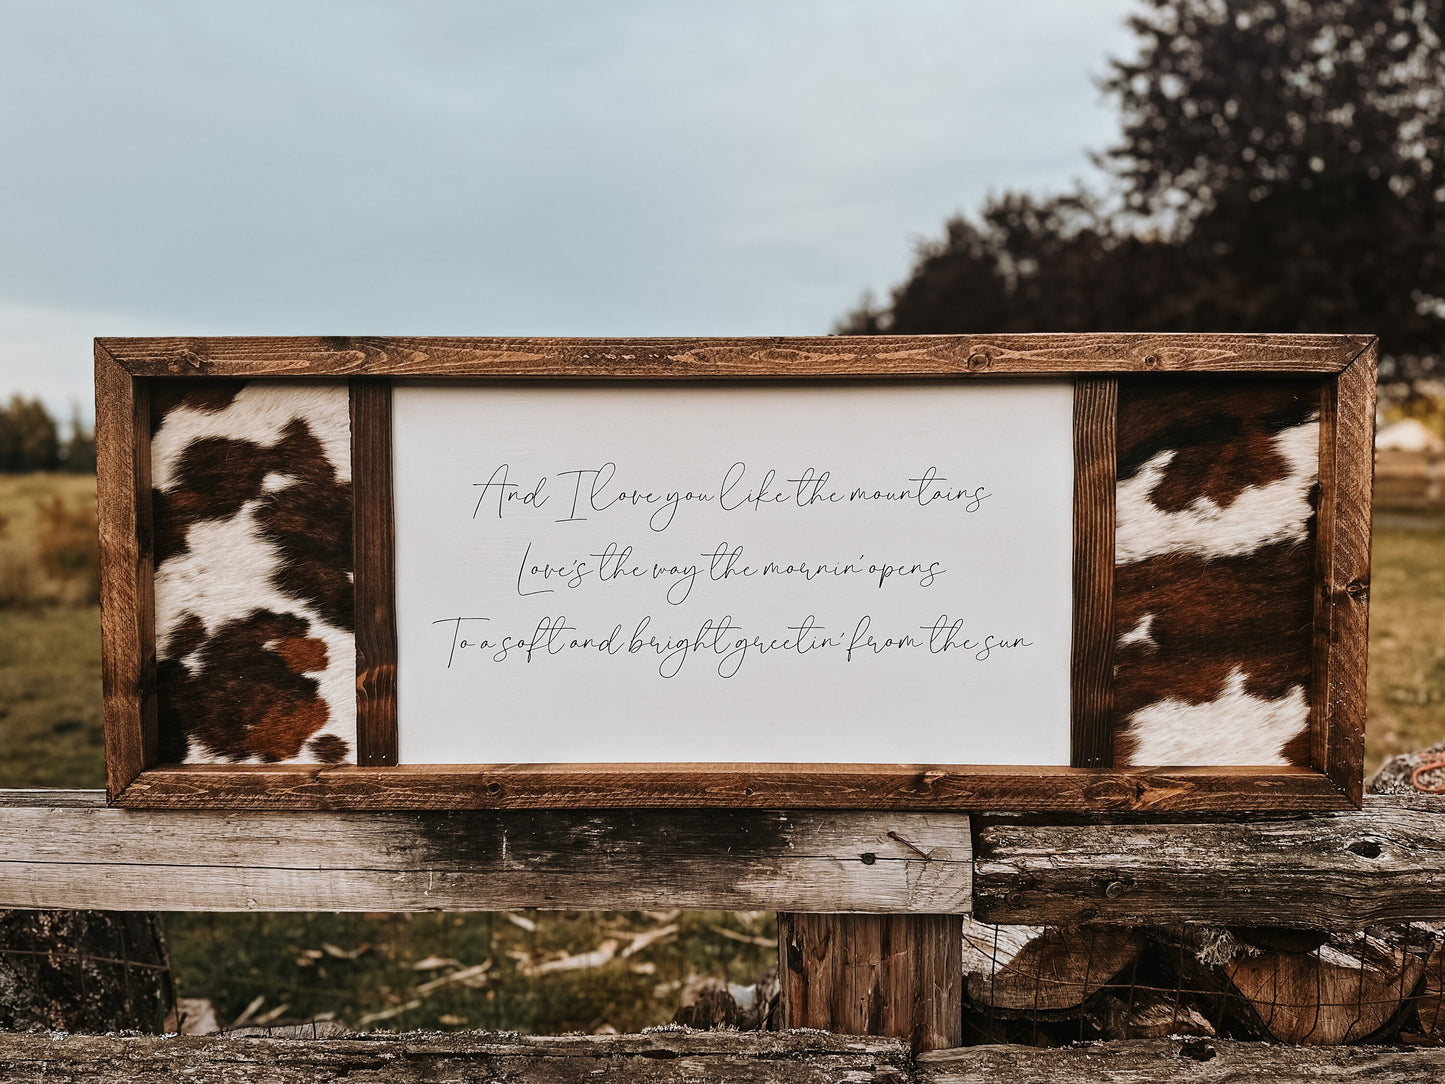 And I love you like the mountains
Love's the way the mornin' opens
To a soft and bright greetin' from the sun